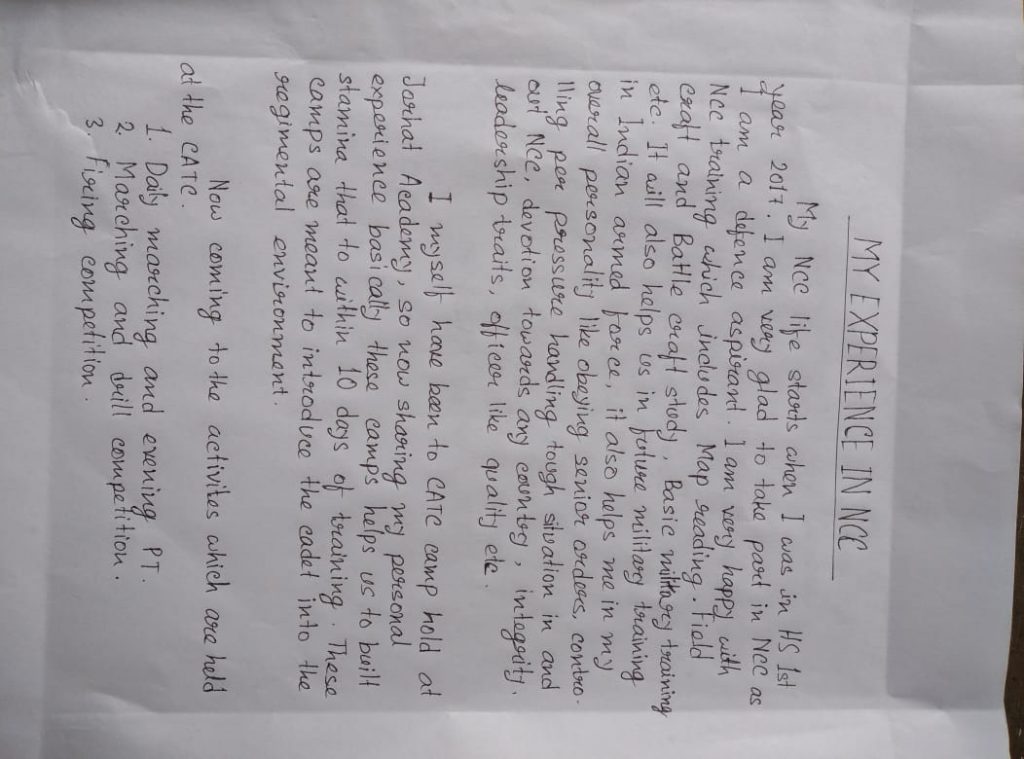 MY EXPERIENCE IN NCC
My Ncc life starts when I was in HS 1st
year 2017. I am very glad to take part in NCC as
I am a defence aspirant. I am very happy with
Ncc training which includes Map reading. Field
craft and Battle craft study, Basic military training
etc. It will also helps us in future military training
in Indian armed force, it also helps me in my
overall personality like obeying senior orders, contro-
lling per pressure handling tough situation in and
out Ncc, devotion towards any country, integrity,
leadership traits, officer like quality etc.
I myself have been to CATC camp hold at
Jorhat Academy, so now sharing my personal
experience basically these camps helps us to built
stamina that to within 10 days of training. These
camps are meant to introduce the cadet into the
regimental environment.
Now coming to the activites which are held
at the CATC.
1. Daily marching and evening PT.
2. Marching and drill competition.
3. Firing competition.